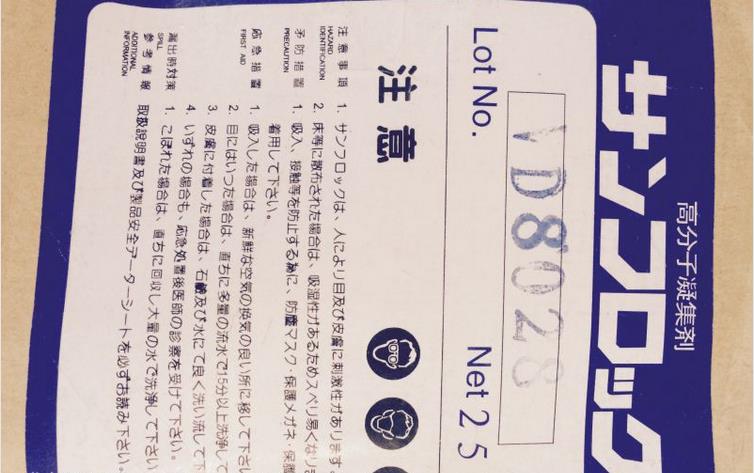 高分子凝集剤
サンフロック
Lot No. VD8028 Net 25
注意
注意事項
HAZARD
IDENTIFICATION
1. サンフロックは、人により目及び皮膚に刺激性があります。
2. 床等に散布された場合は、吸湿性があるためスベリ易くなりま
予防措置
PRECAUTION
1. 吸入、接触等を防止する為に、防塵マスク・保護メガネ・保護
着用して下さい。
応急措置
FIRST AID
1. 吸入した場合は、新鮮な空気の換気の良い所に移して下さい
2. 目にはいった場合は、直ちに多量の流水で15分以上洗浄して
3. 皮膚に付着した場合は、石鹸及び水にて良く洗い流して下
4. いずれの場合も、応急処置後医師の診察を受けて下さい。
漏出時対策
SPILL
1. こぼれた場合は、直ちに回収し大量の水で洗浄して下さい
参考情報
ADDITIONAL
INFORMATION
取扱説明書及び製品安全データーシートを必ずお読み下さい。